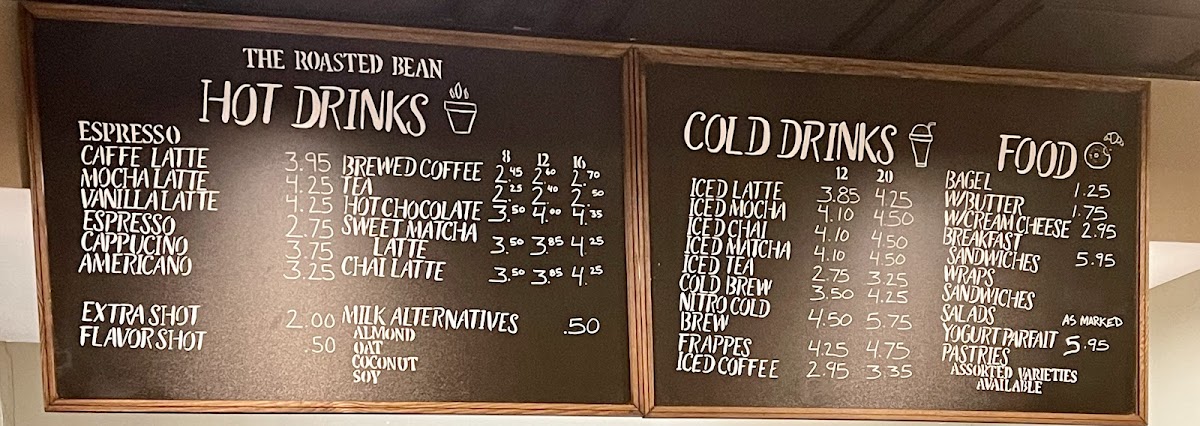 THE ROASTED BEAN
HOT DRINKS
ESPRESSO
CAFFE LATTE 3.95
MOCHA LATTE 4.25
VANILLA LATTE 4.25
ESPRESSO 2.75
CAPPUCINO 3.75
AMERICANO 3.25
EXTRA SHOT 2.00
FLAVOR SHOT .50
8 12 16
BREWED COFFEE 2.45 2.60 2.70
TEA 2.25 2.40 2.50
HOT CHOCOLATE 3.50 4.00 4.35
SWEET MATCHA
LATTE 3.50 3.85 4.25
CHAI LATTE 3.50 3.85 4.25
MILK ALTERNATIVES .50
ALMOND
OAT
COCONUT
SOY
COLD DRINKS
12 20
ICED LATTE 3.85 4.25
ICED MOCHA 4.10 4.50
ICED CHAI 4.10 4.50
ICED MATCHA 4.10 4.50
ICED TEA 2.75 3.25
COLD BREW 3.50 4.25
NITRO COLD
BREW 4.50 5.75
FRAPPES 4.25 4.75
ICED COFFEE 2.95 3.35
FOOD
BAGEL 1.25
W/BUTTER 1.75
W/CREAM CHEESE 2.95
BREAKFAST
SANDWICHES 5.95
WRAPS
SANDWICHES
SALADS AS MARKED
YOGURT PARFAIT 5.95
PASTRIES
ASSORTED VARIETIES
AVAILABLE